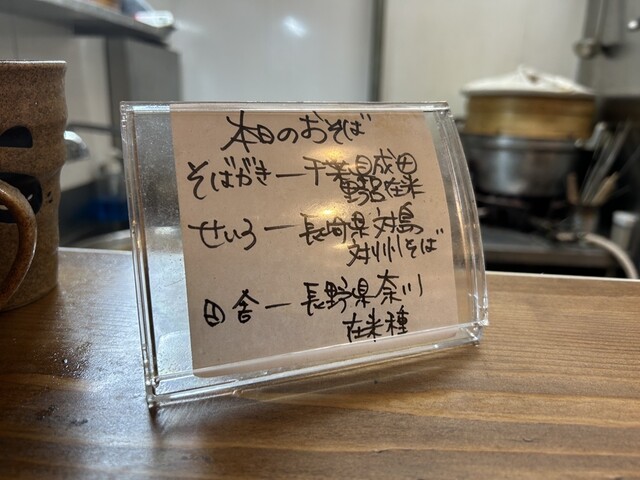 本日のおそば
そばがき—千葉県成田
在来
せいろ—長崎県対島
対州そば
田舎—長野県奈川
在来種